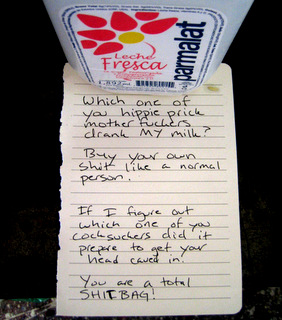 Leche
Fresca
parmalat
Which one of
you hippie prick
mother fuckers
drank MY milk?
Buy your own
shit like a normal
person.
If I figure out
which one of you
cocksuckers did it
prepare to get your
head caved in!
You are a total
SHITBAG!